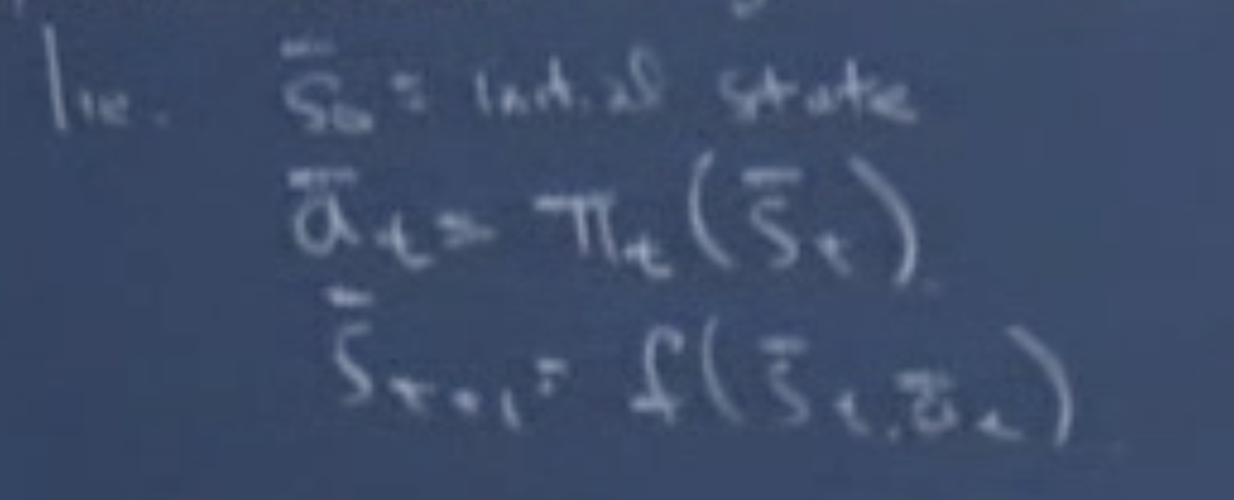 ie. s̄₀ = initial state
āₜ = πₜ(s̄ₜ)
s̄ₜ₊₁ = f(s̄ₜ, āₜ)